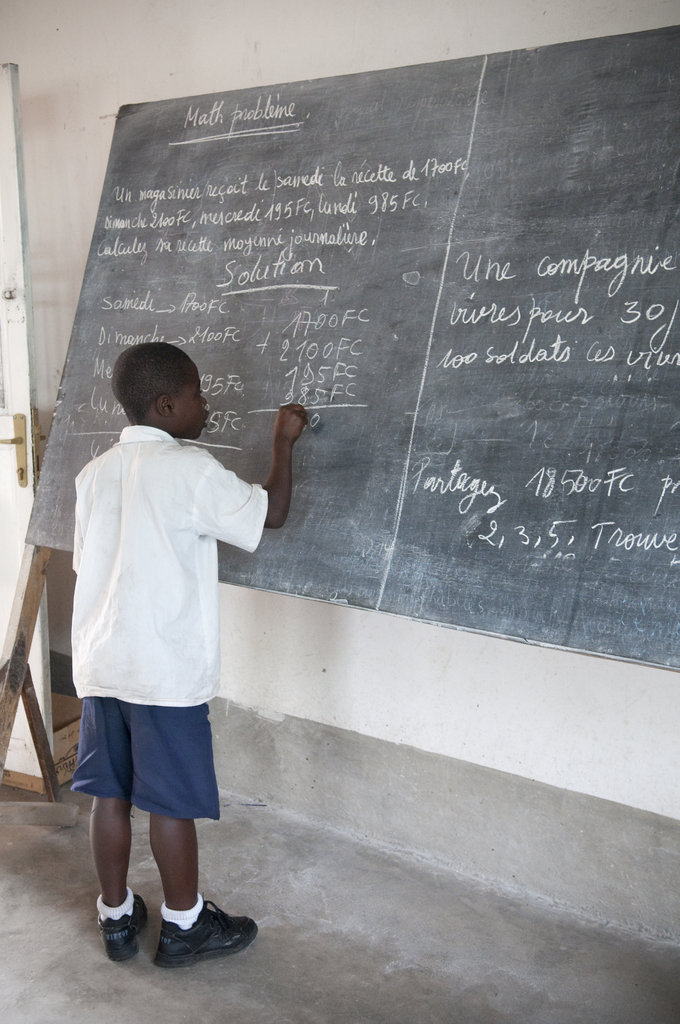 Math problème.
Un magasinier reçoit le samedi la récette de 1700FC
Dimanche 2100FC, mercredi 195FC, lundi 985FC.
Calculez sa récette moyenne journalière.
Solution
Samedi → 1700FC
Dimanche → 2100FC
Me 195FC
Lu 5FC
1
1700FC
+ 2100FC
195FC
985FC
0
Une compagnie
vivres pour 30j
100 soldats ces vivr
Partagez 18500FC pr
2, 3, 5. Trouve